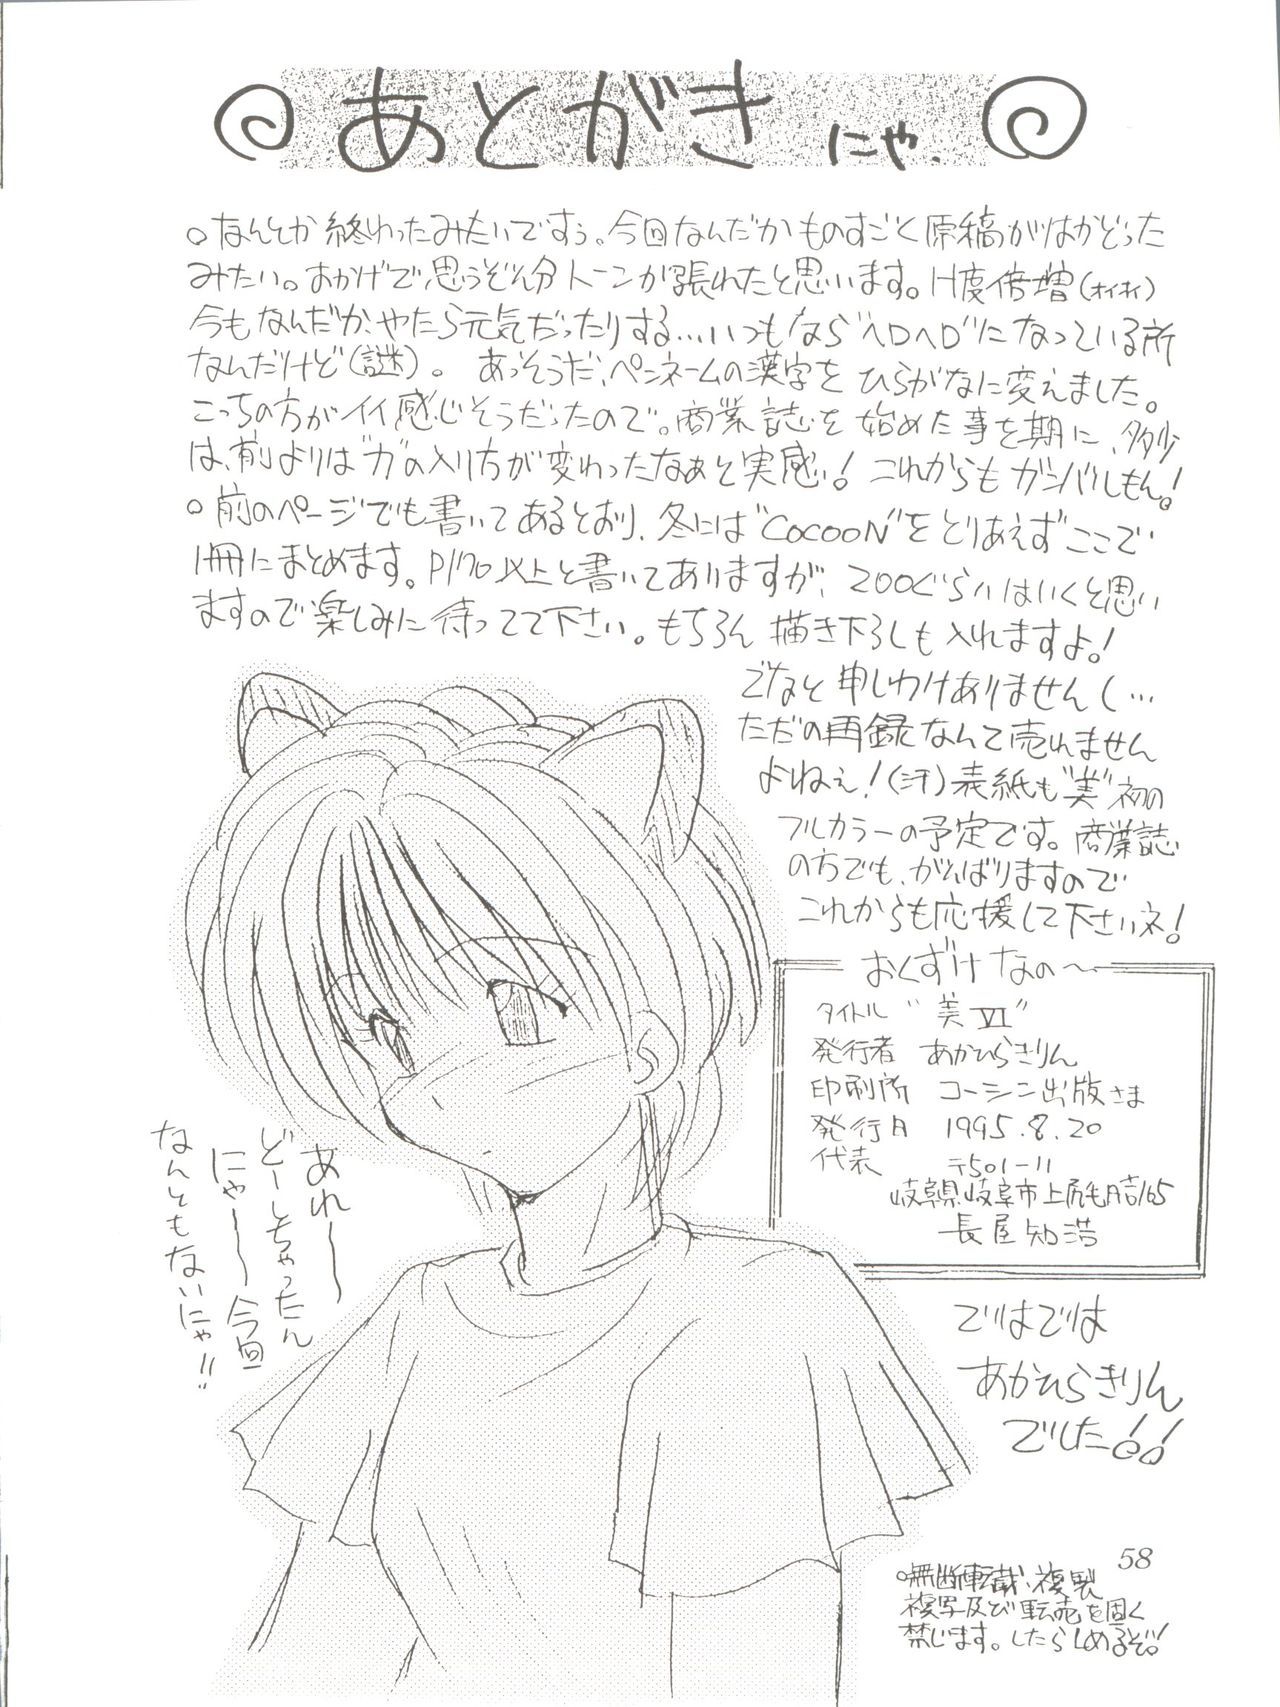 あとがき にゃ.
○なんとか終わったみたいですぅ。今回なんだかものすごく原稿がはかどった
みたい。おかげで思うぞん分トーンが張れたと思います。H度倍増(オイオイ)
今もなんだか、やたら元気だったりする…いつもなら"ヘロヘロ"になっている所
なんだけど(謎)。 あっそうだ、ペンネームの漢字をひらがなに変えました。
こっちの方がイイ感じそうだったので。商業誌を始めた事を期に、多少
は、前よりは"力"の入り方が変わったなぁと実感!これからもガンバルしもん!
○前のページでも書いてあるとおり、冬には"COCOON"をとりあえずここで
1冊にまとめます。P170以上と書いてありますが、200ぐらいはいくと思い
ますので楽しみに待ってて下さい。もちろん描き下ろしも入れますよ!
でなと申しわけありませんし…
ただの再録なんて売れません
よねぇ!(汗)表紙も"美"初の
フルカラーの予定です。商業誌
の方でも、がんばりますので
これからも応援して下さいネ!
おくずけなの〜
タイトル "美Ⅵ"
発行者 あかひらきりん
印刷所 コーシン出版さま
発行日 1995.8.20
代表 〒501-11
岐阜県岐阜市上尻毛日吉165
長屋知浩
あれ〜
どーしちゃったん
にゃー 今回
なんともないにゃ!!
ではでは
あかひらきりん
でした!!
58
○無断転載、複製
複写及び転売を固く
禁じます。したらしめるぞ!